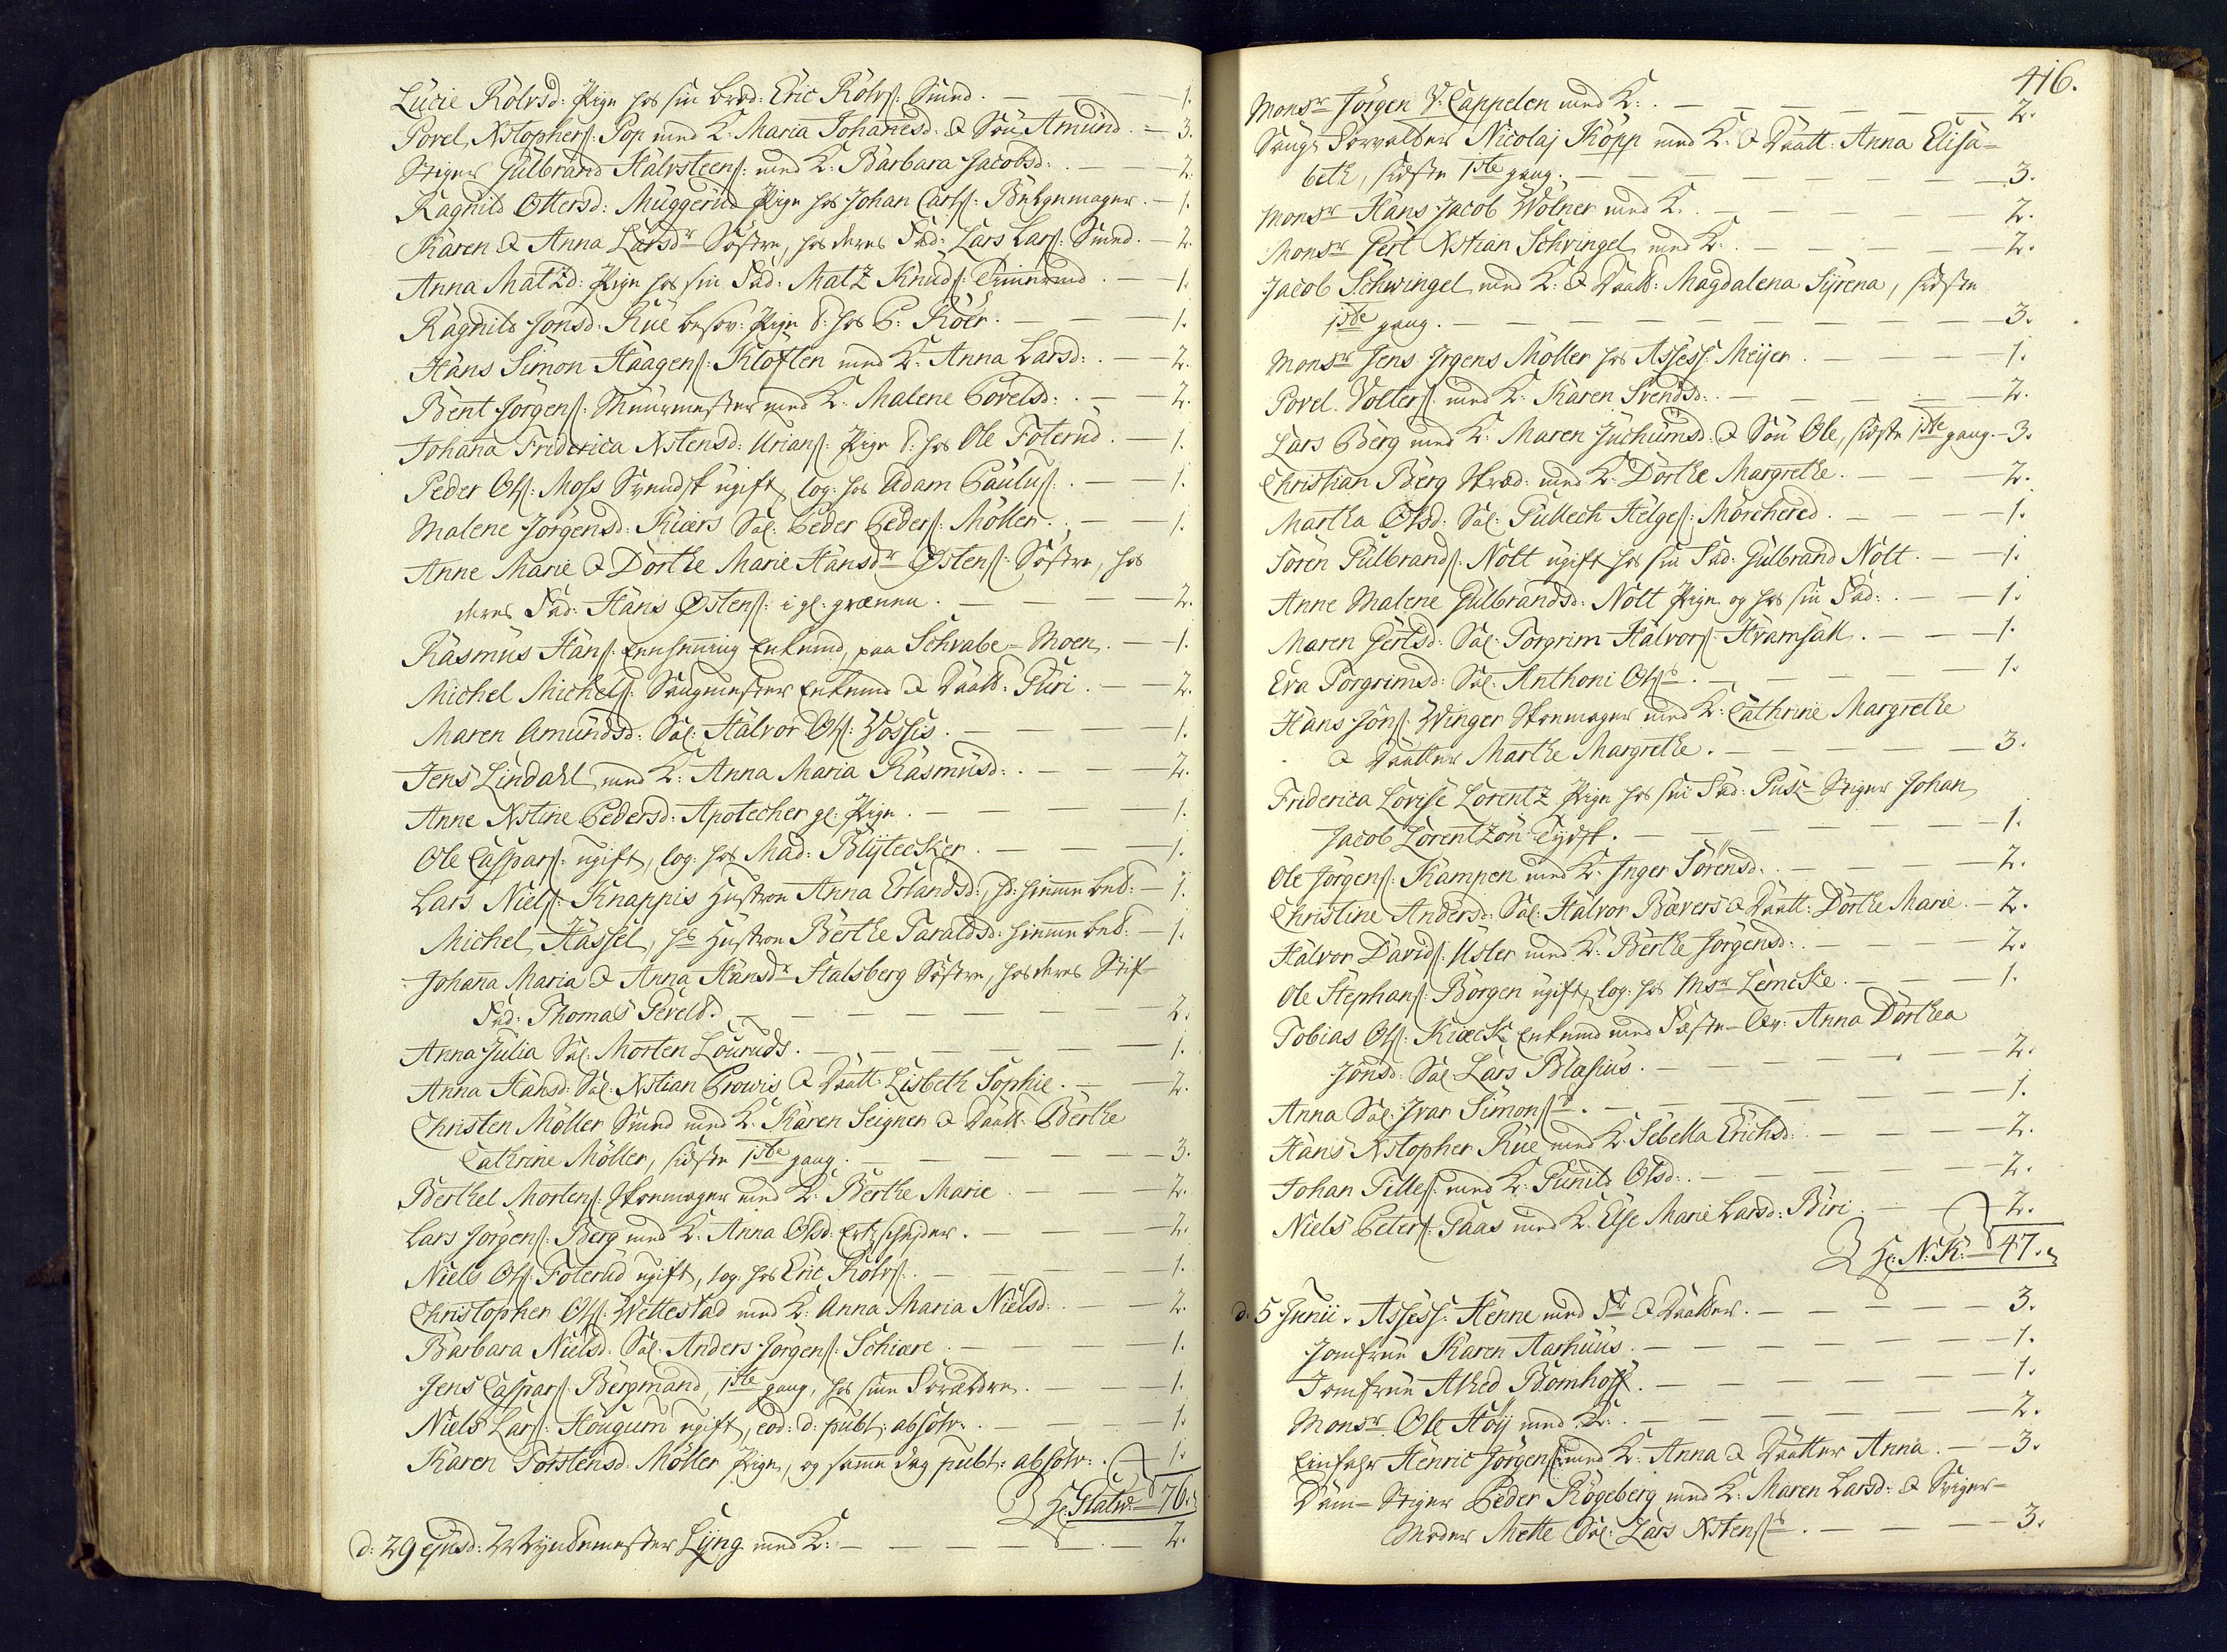 Lucie Rolvsd: Pige hos sin brod: Eric Rolvs: Smed. — 1.
Povel Xstophers: Pop med K: Maria Johañesd: & Søn Amund. — 3.
Stiger Gulbrand Halvsteens: med K: Barbara Jacobsd: — 2.
Ragnild Ottersd: Muggerud Pige hos Johan Carls: — 1.
Karen & Anna Larsdr Søstre, hos deres Fad: Lars Lars: Smed. — 2.
Anna Matzd: Pige hos sin Fad: Matz Knuds: — 1.
Ragnild Jonsd: Rue besov: Pige t: hos P: Roer. — 1.
Hans Simon Haagens: Kloften med K: Anna Larsd: — 2.
Bent Jørgens: Muurmester med K: Malene Povelsd: — 2.
Johaña Friderica Xstensd: Urians: Pige t: hos Ole Foterud. — 1.
Peder Ols: Moss Svendsk ugift, log: hos Adam Paulus: — 1.
Malene Jørgensd: Kiærs Sal: Peder Peders: Møller. — 1.
Anne Marie & Dorthe Marie Hansdr Østens: Søstre, hos
deres Fad: Hans Østens: i gl: grænen. — 2.
Rasmus Hans: Enkemd, paa Schrabe-Moen. — 1.
Michel Michels: Saugmester Enkemd & Daatt: Guri. — 2.
Maren Amundsd: Sal: Halvor Ols: Vossis. — 1.
Jens Lindahl med K: Anna Maria Rasmusd: — 2.
Anne Xstine Pedersd: Apothecher gl: Pige. — 1.
Ole Caspars: ugift, log: hos Mad: Blytecker. — 1.
Lars Niels: Knappis Hustroe Anna Erlandsd:, hieme bet: — 1.
Michel Hassel, hs Hustroe Berthe Taraldsd: hieme bet: — 1.
Johaña Maria & Anna Hansdr Stalsberg Søstre, hos deres Stif-
Fad: Thomas Geveld. — 2.
Anna Julia Sal: Morten Louruds. — 1.
Anna Hansd: Sal: Xstian Prowis & Daatt: Lisbeth Sophie. — 2.
Christen Møller Smed med K: Karen Seigner & Daatt: Berthe
Cathrine Møller, sidste 1ste gang. — 3.
Berthel Mortens: Skoemager med K: Berthe Marie. — 2.
Lars Jørgens: Berg med K: Anna Olsd: Ertzscheider. — 2.
Niels Ols: Foterud ugift, log: hos Eric Rolvs: — 1.
Christopher Ols: Wettestad med K: Anna Maria Nielsd: — 2.
Barbara Nielsd: Sal: Anders Jørgens: Schiære. — 1.
Jens Caspars: Bergmand, 1ste gang, hos sine Forældre. — 1.
Niels Lars: Hougum ugift, eod: d: publ: absolv: — 1.
Karen Torstensd: Møller Pige, og samme dag publ: absolv: — 1.
H: Statw: — 76.
d: 29 ejusd: Myndtmester Lyng med K: — 2.
416.
Monsr Jørgen V: Cappelen med K: — 2.
Saugs Forvalter Nicolaj Køpp med K: & Daatt: Anna Elisa-
beth, sidste 1ste gang. — 3.
Monsr Hans Jacob Wølner med K. — 2.
Monsr Gert Xstian Schvingel med K: — 2.
Jacob Schwingel med K: & Daatt: Magdalena Syrena, sidste
1ste gang. — 3.
Monsr Jens Jrgens Møller hos Assess: Meyer. — 1.
Povel Volters: med K: Karen Svendsd: — 2.
Lars Berg med K: Maren Juchumsd: & Søn Ole, sidste 1ste gang. — 3.
Christian Berg Skræd: med K: Dorthe Margrethe. — 2.
Martha Olsd: Sal: Gullech Helges: Mørchered. — 1.
Søren Gulbrands: Nott ugift hos sin Fad: Gulbrand Nott. — 1.
Anne Malene Gulbrandsd: Nott Pige og hos sin Fad: — 1.
Maren Gertsd: Sal: Torgrim Halvors: Hvamsall. — 1.
Eva Torgrimsd: Sal: Anthoni Ols: — 1.
Hans Jons: Winger Skoemager med K: Cathrine Margrethe
& Daatter Marthe Margrethe. — 3.
Friderica Lovise Lorentz Pige hos sin Fad: Stiger Johan
Jacob Lorentzon Tydsk. — 1.
Ole Jørgens: Kampen med K: Jnger Sørensd: — 2.
Christine Andersd: Sal: Halvor Bævers & Daatt: Dorthe Marie. — 2.
Halvor Davids: Usler med K: Berthe Jørgensd: — 2.
Ole Stephans: Borgen ugift, log: hos Msr Lemcke. — 1.
Tobias Ols: Kiæck Enkemd med Fæste-Qv: Anna Dorthea
Jonsd: Sal: Lars Blasius. — 2.
Anna Sal: Jvar Simons: — 1.
Hans Xstopher Rue med K: Sebella Erichsd: — 2.
Johan Tilles: med K: Gunild Olsd: — 2.
Niels Peters: Gaas med K: Else Marie Larsd: Biri. — 2.
H: N: K: — 47.
d: 5 Junii. Assess: Henne med Fr & Daatter. — 3.
Jomfrue Karen Aarhuus. — 1.
Jomfrue Alhed Bomhoff. — 1.
Monsr Ole Høij med K: — 2.
Einfahr Henric Jørgens: med K: Anna & Daatter Anna. — 3.
Dam-Stiger Peder Rogeberg med K: Maren Larsd: & Sviger-
Moder Mette Sal: Lars Xstens: — 3.